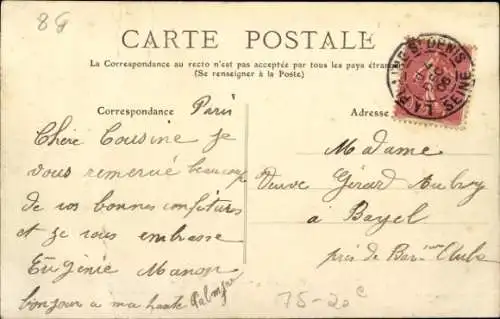 8G
CARTE POSTALE
La Correspondance au recto n'est pas acceptée par tous les pays étran
(Se renseigner à la Poste)
LA PL ... INE ST DENIS
SEINE
Correspondance
Adresse
Paris
Chère Cousine je
vous remercie beaucoup
de vos bonnes confitures
et je vous embrasse
Eugénie Manon
bonjour a ma
Madame
Veuve Gérard Aubry
à Bayel
près de Bar sur Aube
75-20c